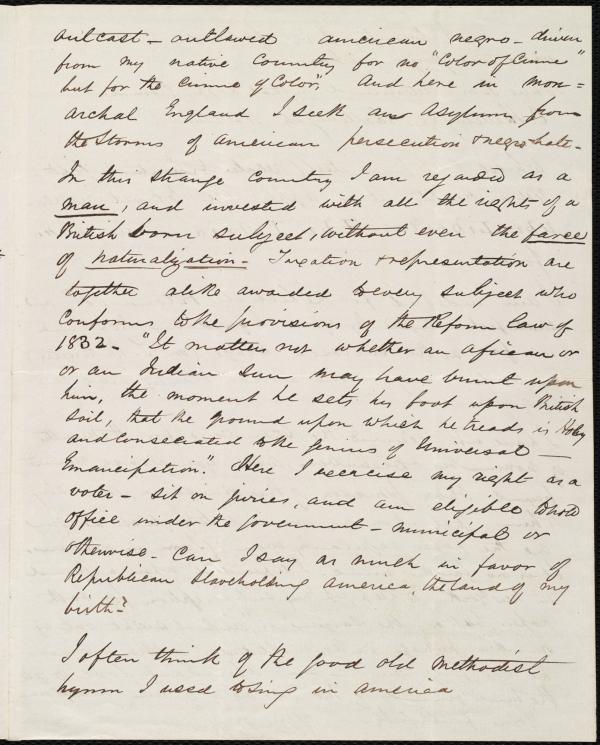 outcast - outlawed american negro - driven
from my native country for no "Color of Crime"
but for the crime of Color". And here in mon=
archal England I seek an Asylum from
the Storms of american persecution & negro hate -
In this strange country I am regarded as a
man, and invested with all the rights of a
British born subject, without even the farce
of naturalization - Taxation & representation are
together alike awarded to every subject who
conforms to the provisions of the Reform law of
1832 - "It matters not whether an african or
or an Indian sun may have burnt upon
him, the moment he sets his foot upon British
soil, that the ground upon which he treads is Holy
and consecrated to the genius of Universal -
Emancipation". Here I exercise my right as a
voter - sit on juries, and am eligible to hold
office under the government - municipal or
otherwise - Can I say as much in favor of
Republican Slaveholding america, the land of my
birth?
I often think of the good old methodist
hymn I used to sing in america